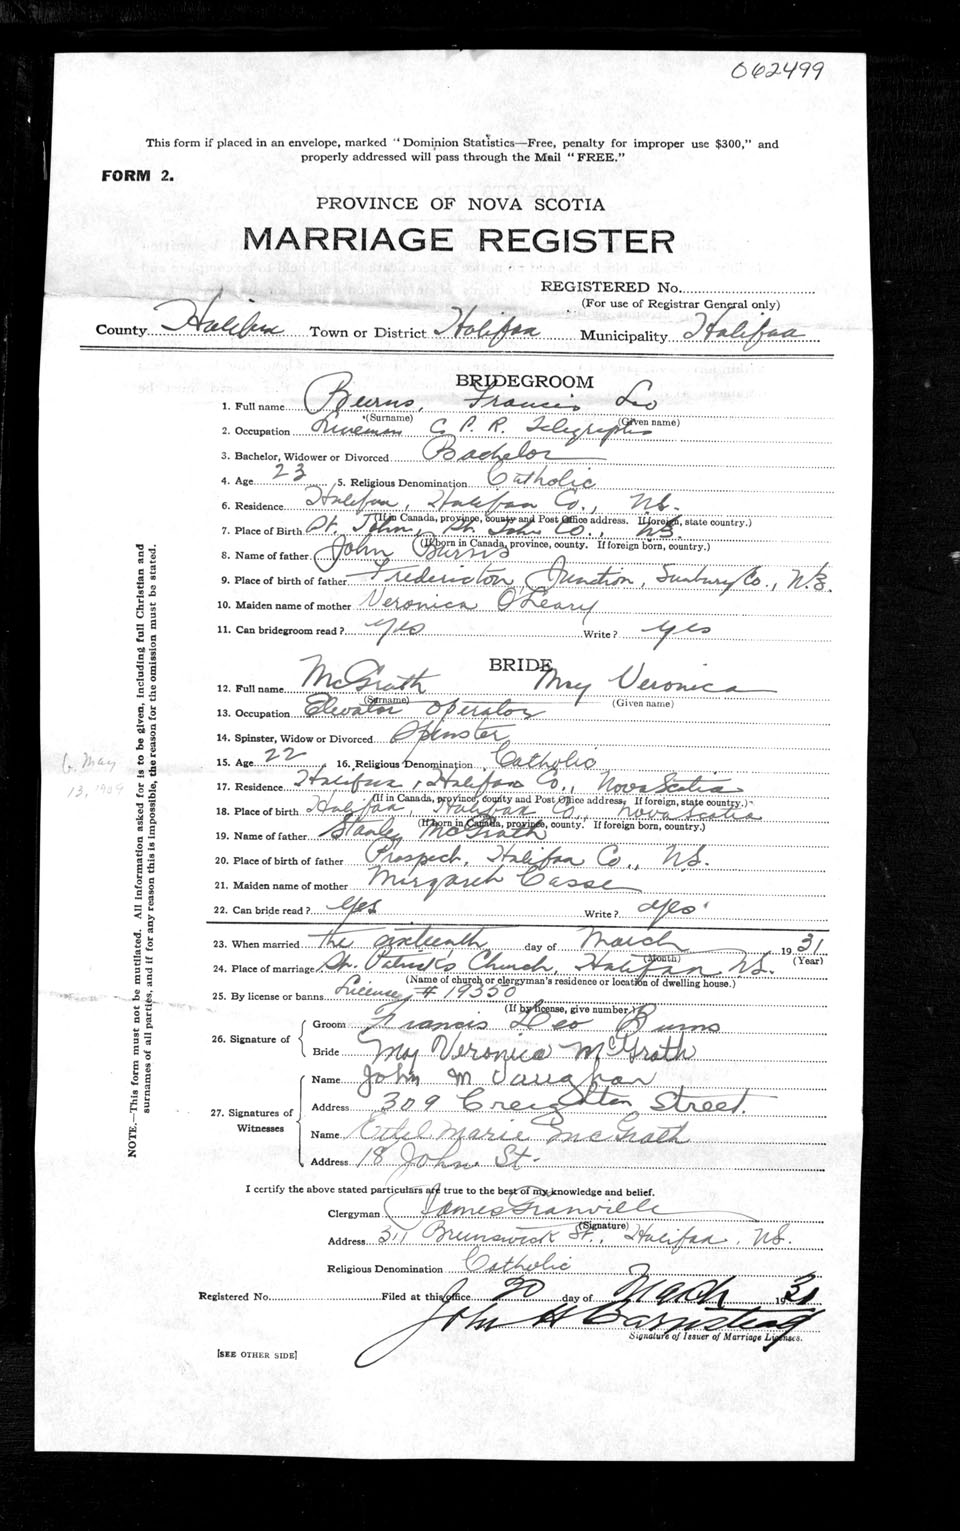 062499
This form if placed in an envelope, marked "Dominion Statistics—Free, penalty for improper use $300," and
properly addressed will pass through the Mail "FREE."
FORM 2.
PROVINCE OF NOVA SCOTIA
MARRIAGE REGISTER
REGISTERED No.
(For use of Registrar General only)
County Halifax Town or District Halifax Municipality Halifax
BRIDEGROOM
1. Full name Burns, Francis Leo
(Surname) (Given name)
2. Occupation Lineman C. P. R. Telegraphs
3. Bachelor, Widower or Divorced Bachelor
4. Age 23 5. Religious Denomination Catholic
6. Residence Halifax, Halifax Co., N.S.
(If in Canada, province, county and Post Office address. If foreign, state country.)
7. Place of Birth St. John, St. John Co., N.B.
(If born in Canada, province, county. If foreign born, country.)
8. Name of father John Burns
9. Place of birth of father Fredericton Junction, Sunbury Co., N.B.
10. Maiden name of mother Veronica O'Leary
11. Can bridegroom read? yes Write? yes
BRIDE
12. Full name McGrath May Veronica
(Surname) (Given name)
13. Occupation Elevator Operator
14. Spinster, Widow or Divorced Spinster
15. Age 22 16. Religious Denomination Catholic
17. Residence Halifax, Halifax Co., Nova Scotia
(If in Canada, province, county and Post Office address. If foreign, state country.)
18. Place of birth Halifax, Halifax Co., Nova Scotia
(If born in Canada, province, county. If foreign born, country.)
19. Name of father Stanley McGrath
20. Place of birth of father Prospect, Halifax Co., N.S.
21. Maiden name of mother Margaret Casse
22. Can bride read? yes Write? yes
23. When married the sixteenth day of March 1931
(Month) (Year)
24. Place of marriage St. Patrick's Church, Halifax N.S.
(Name of church or clergyman's residence or location of dwelling house.)
25. By license or banns License # 19350
(If by license, give number.)
26. Signature of
Groom Francis Leo Burns
Bride May Veronica McGrath
27. Signatures of Witnesses
Name John M Vaughan
Address 309 Creighton Street.
Name Ethel Marie McGrath
Address 18 John St.
I certify the above stated particulars are true to the best of my knowledge and belief.
Clergyman James Granville
(Signature)
Address 311 Brunswick St., Halifax, N.S.
Religious Denomination Catholic
Registered No. Filed at this office 20 day of March 1931
John H Barnstead
Signature of Issuer of Marriage Licenses.
[SEE OTHER SIDE]
NOTE.—This form must not be mutilated. All information asked for is to be given, including full Christian and
surnames of all parties, and if for any reason this is impossible, the reason for the omission must be stated.
b. May
13, 1909